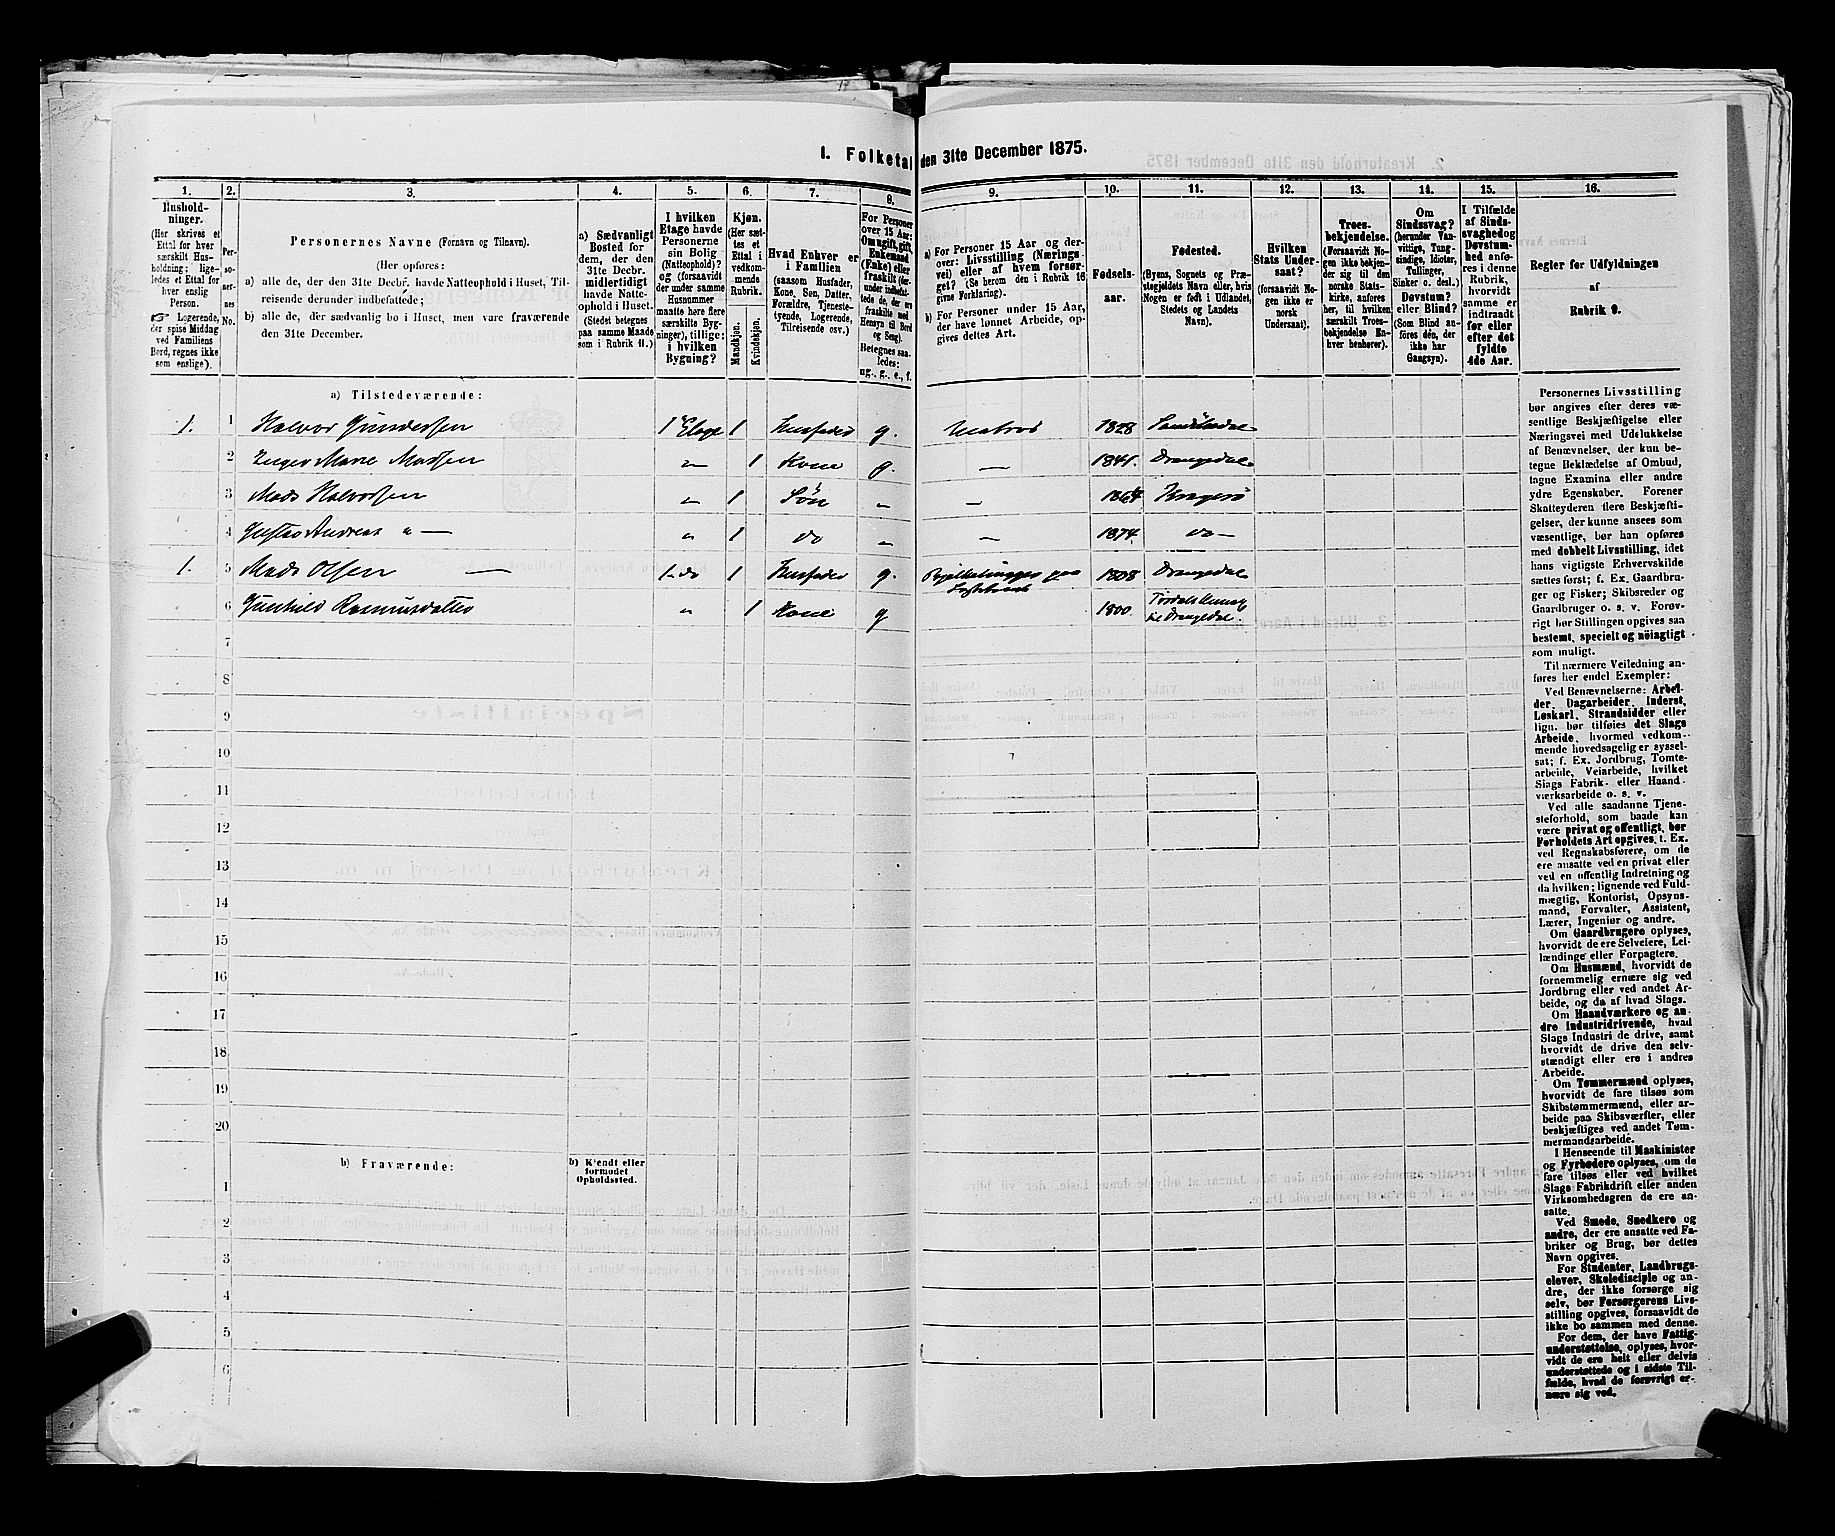 1. Folketal den 31te December 1875.
1.
2.
3.
4.
5.
6.
7.
8.
9.
10.
11.
12.
13.
14.
15.
16.
Hushold-
ninger.
(Her skrives et
Ettal for hver
særskilt Hus-
holdning; lige-
ledes et Ettal
for hver
enslig
Person.
☞ Logerende,
der spise Middag
ved Familiens
Bord, regnes ikke
som enslige).
Per-
so-
ner-
nes
No.
Personernes Navne (Fornavn og Tilnavn).
(Her opføres:
a) alle de, der den 31te Decbr. havde Natteophold i Huset, Til-
reisende derunder indbefattede;
b) alle de, der sædvanlig bo i Huset, men vare fraværende
den 31te December.
a) Sædvanligt
Bosted for
dem, der den
31te Decbr.
midlertidigt
havde Natte-
ophold i Huset.
(Stedet betegnes
paa samme Maade
som i Rubrik 11.)
I hvilken
Etage havde
Personerne
sin Bolig
(Natteophold)?
og (forsaavidt
der under samme
Husnummer
maatte høre flere
særskilte Byg-
ninger), tillige:
i hvilken
Bygning?
Kjøn.
(Her sæt-
tes et
Ettal i
vedkom-
mende
Rubrik.
Mandkjøn.
Kvindekjøn.
Hvad Enhver er
i Familien
(saasom Husfader,
Kone, Søn, Datter,
Forældre, Tjeneste-
tyende, Logerende,
Tilreisende osv.)
For Personer
over 15 Aar:
Om ugift, gift,
Enkemand
(Enke) eller
fraskilt (der-
under indbefat-
tede de, der ere
fraskilte med
Hensyn til Bord
og Seng).
Betegnes saa-
ledes:
ug., g., e., f.
a) For Personer 15 Aar og der-
over: Livsstilling (Nærings-
vei) eller af hvem forsør-
get? (Se herom den i Rubrik 16
givne Forklaring).
b) For Personer under 15 Aar,
der have lønnet Arbeide, op-
gives dettes Art.
Fødsels-
aar.
Fødested.
(Byens, Sognets og Præ-
stegjeldets Navn eller, hvis
Nogen er født i Udlandet,
Stedets og Landets
Navn).
Hvilken
Stats Under-
saat?
(forsaavidt No-
gen ikke er
norsk
Undersaat).
Troes-
bekjendelse.
(Forsaavidt No-
gen ikke bekjen-
der sig til den
norske Stats-
kirke, anføres
her, til hvilken
særskilt Troes-
bekjendelse En-
hver henhører).
Om
Sindssvag?
(herunder Van-
vittige, Tung-
sindige, Idioter,
Tullinger,
Sinker o. desl.)
Døvstum?
eller Blind?
(Som Blind an-
føres dén, der
ikke har
Gangsyn).
I Tilfælde
af Sinds-
svaghed og
Døvstum-
hed anfø-
res i denne
Rubrik,
hvorvidt
samme er
indtraadt
før eller
efter det
fyldte
4de Aar.
Regler for Udfyldningen
af
Rubrik 9.
a) Tilstedeværende:
1. 1 Halvor Gundersen 1ste Etage 1 Husfader g. Matros 1828 Sandökedal
2 Inger Marie Madsen " 1 Kone g. — 1841. Drangedal
3 Mads Halvorsen " 1 Søn " — 1864 Kragerö
4 Gustav Andreas " — " 1 do " — 1874 do —
1. 5 Mads Olsen — 1 do 1 Husfader g. 1808 Drangedal
6 Gunhild Rasmusdatter " 1 Kone g 1800. Drangedal.
7
8
9
10
11
12
13
14
15
16
17
18
19
20
b) Fraværende:
b) Kjendt eller
formodet
Opholdssted.
1
2
3
4
5
6
Personernes Livsstilling
bør angives efter deres væ-
sentlige Beskjæftigelse eller
Næringsvei med Udelukkelse
af Benævnelser, der kun be-
tegne Beklædelse af Ombud,
tagne Examina eller andre
ydre Egenskaber. Forener
Skatteyderen flere Beskjæfti-
gelser, der kunne ansees som
væsentlige, bør han opføres
med dobbelt Livsstilling, idet
hans vigtigste Erhvervskilde
sættes først; f. Ex. Gaardbru-
ger og Fisker; Skibsreder og
Gaardbruger o. s. v. Forøv-
rigt bør Stillingen opgives saa
bestemt, specielt og nöiagtigt
som muligt.
Til nærmere Veiledning an-
føres her endel Exempler:
Ved Benævnelserne: Arbei-
der, Dagarbeider, Inderst,
Løskarl, Strandsidder eller
lign. bør tilføies det Slags
Arbeide, hvormed vedkom-
mende hovedsagelig er syssel-
sat; f. Ex. Jordbrug, Tomte-
arbeide, Veiarbeide, hvilket
Slags Fabrik- eller Haand-
værksarbeide o. s. v.
Ved alle saadanne Tjene-
steforhold, som baade kan
være privat og offentligt, bør
Forholdets Art opgives, t. Ex.
ved Regnskabsførere, om de
ere ansatte ved en privat eller
ved en offentlig Indretning og
da hvilken; lignende ved Fuld-
mægtig, Kontorist, Opsyns-
mand, Forvalter, Assistent,
Lærer, Ingeniør og andre.
Om Gaardbrugere oplyses,
hvorvidt de ere Selveiere, Lei-
lændinge eller Forpagtere.
Om Husmænd, hvorvidt de
fornemmelig ernære sig ved
Jordbrug eller ved andet Ar-
beide, og da af hvad Slags.
Om Haandværkere og an-
dre Industridrivende, hvad
Slags Industri de drive, samt
hvorvidt de drive den selv-
stændigt eller ere i andres
Arbeide.
Om Tømmermænd oplyses,
hvorvidt de fare tilsøs som
Skibstømmermænd, eller ar-
beide paa Skibsværfter, eller
beskjæftiges ved andet Tøm-
mermandsarbeide.
I Henseende til Maskinister
og Fyrbødere oplyses, om de
fare tilsøs eller ved hvilket
Slags Fabrikdrift eller anden
Virksomhedsgren de ere an-
satte.
Ved Smede, Snedkere og
andre, der ere ansatte ved Fa-
briker og Brug, bør dettes
Navn opgives.
For Studenter, Landbrugs-
elever, Skoledisciple og an-
dre, der ikke forsørge sig
selv, bør Forsørgerens Livs-
stilling opgives, forsaavidt de
ikke bo sammen med denne.
For dem, der have Fattig-
understøttelse, oplyses, hvor-
vidt de ere helt eller delvis
understøttede og i sidste Til-
fælde, hvad de forøvrigt er-
nære sig ved.